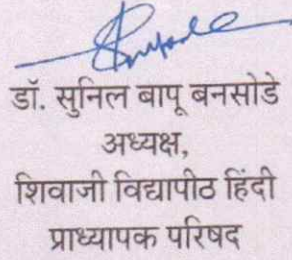 डॉ. सुनिल बापू बनसोडे
अध्यक्ष,
शिवाजी विद्यापीठ हिंदी
प्राध्यापक परिषद